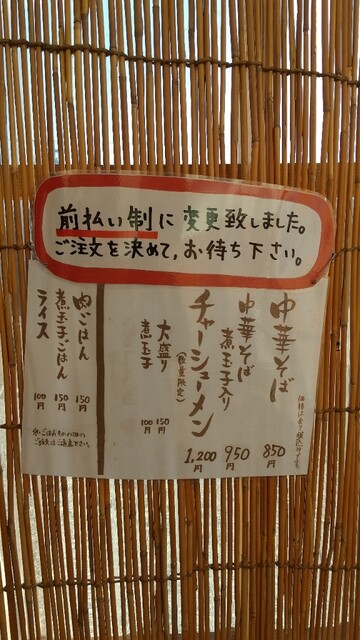 前払い制に変更致しました。
ご注文を決めて、お待ち下さい。
価格は全て税込みです。
中華そば 850円
中華そば 煮玉子入り 950円
チャーシューメン (数量限定) 1,200円
大盛り 150円
煮玉子 100円
肉ごはん 150円
煮玉子ごはん 150円
ライス 100円